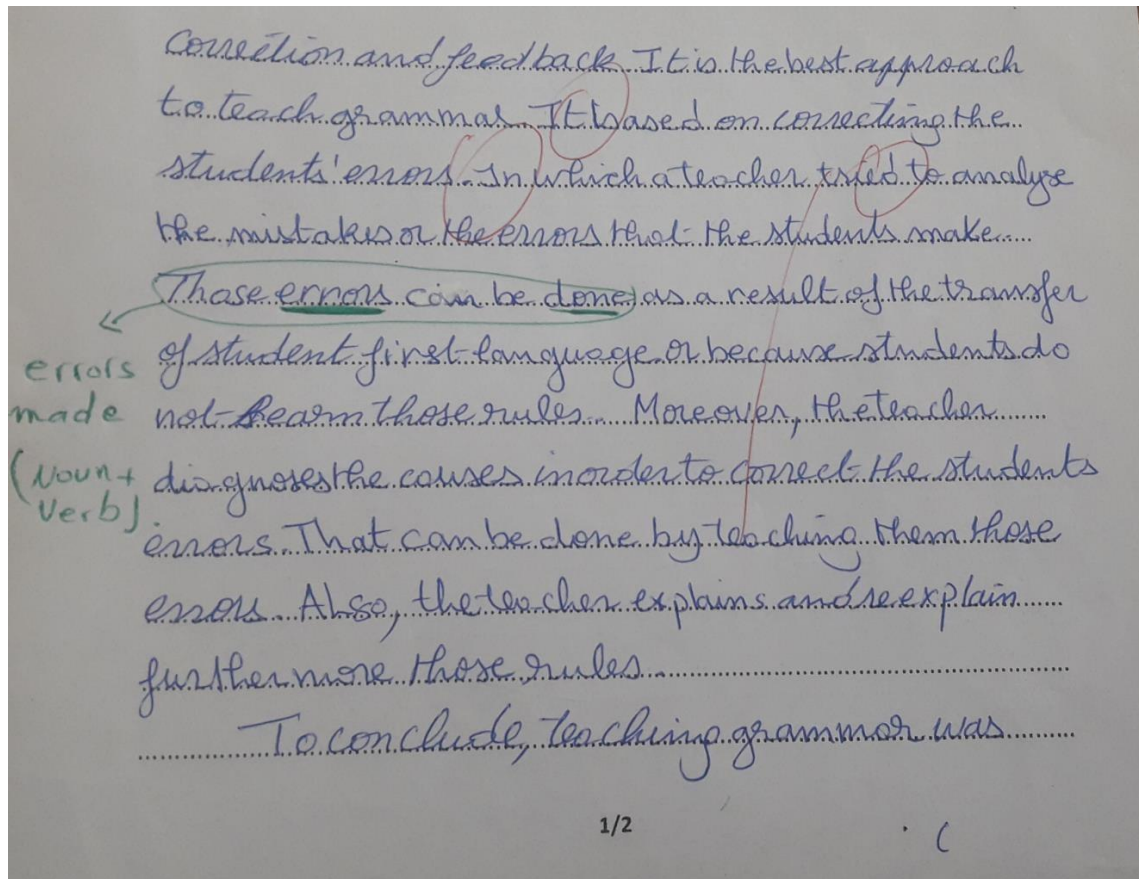 Correction and feedback. It is the best approach
to teach grammar. It based on correcting the
students' errors. In which a teacher tried to analyse
the mistakes or the errors that the students make.
Those errors can be done as a result of the transfer
of student first language or because students do
not learn those rules. Moreover, the teacher
diagnoses the causes in order to correct the students
errors. That can be done by teaching them those
errors. Also, the teacher explains and reexplain
furthermore those rules.
To conclude, teaching grammar was
errors
made
(Noun +
Verb).
1/2